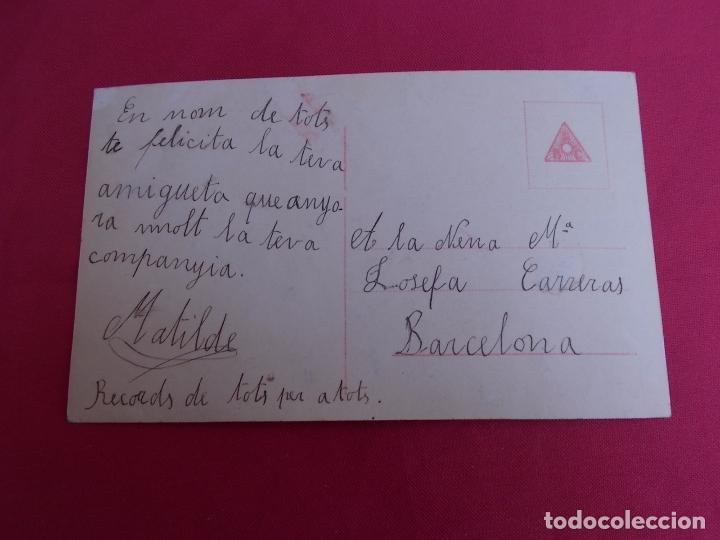 En nom de tots
te felicita la teva
amigueta que anyo-
ra molt la teva
companyia.
Matilde
Records de tots per a tots.
A la Nena Mª
Josefa Carreras
Barcelona
todocoleccion.net